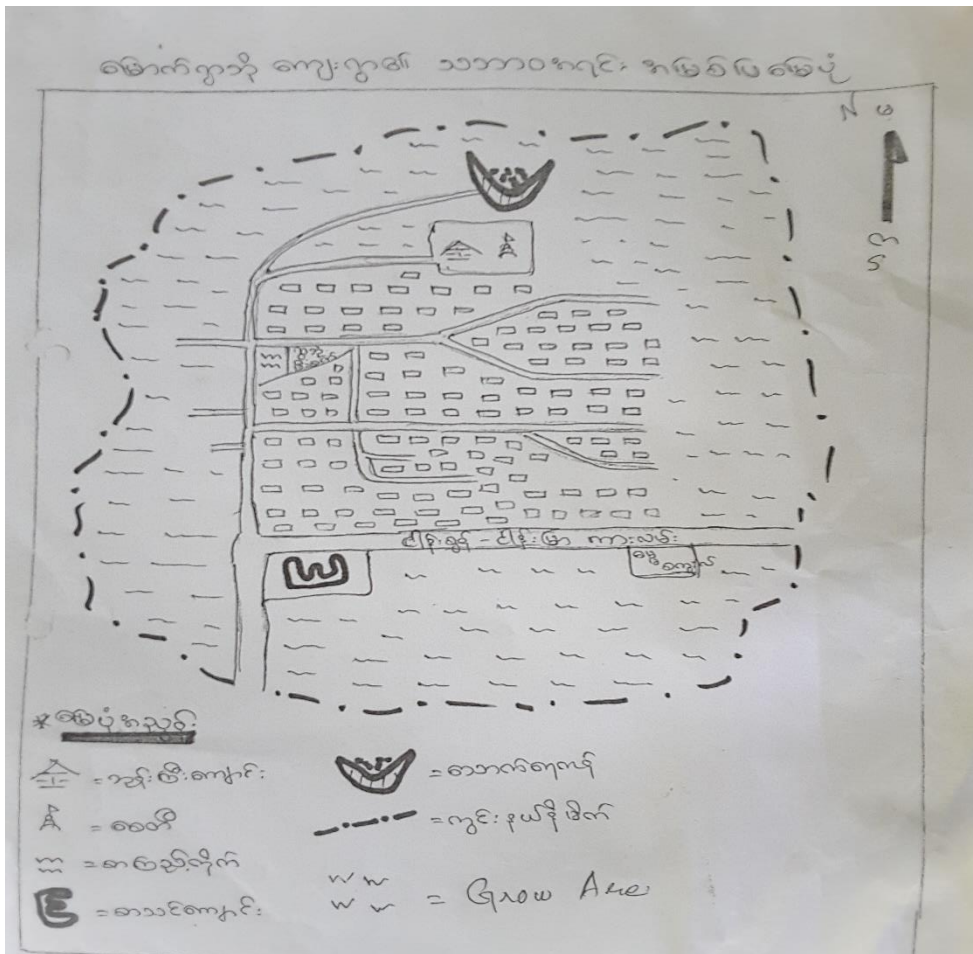 မြောက်ရွာသို ကျေးရွာ၏ သဘာဝအရင်း အမြစ်ပြမြေပုံ
N မ
တ
S
ကားလမ်း
*မြေပုံအညွှန်း
= ဘုန်းကြီးကျောင်း
= စေတီ
= စာကြည့်တိုက်
= စာသင်ကျောင်း
= တဘက်ရေကန်
= ကွင်းနယ်နိမိတ်
= Grow Are